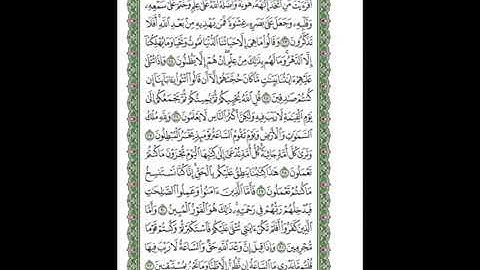 أَفَرَءَيْتَ مَنِ ٱتَّخَذَ إِلَٰهَهُۥ هَوَىٰهُ وَأَضَلَّهُ ٱللَّهُ عَلَىٰ عِلْمٍ وَخَتَمَ عَلَىٰ سَمْعِهِۦ
وَقَلْبِهِۦ وَجَعَلَ عَلَىٰ بَصَرِهِۦ غِشَٰوَةً فَمَن يَهْدِيهِ مِنۢ بَعْدِ ٱللَّهِ أَفَلَا
تَذَكَّرُونَ ٢٣ وَقَالُوا۟ مَا هِىَ إِلَّا حَيَاتُنَا ٱلدُّنْيَا نَمُوتُ وَنَحْيَا وَمَا يُهْلِكُنَآ
إِلَّا ٱلدَّهْرُ وَمَا لَهُم بِذَٰلِكَ مِنْ عِلْمٍ إِنْ هُمْ إِلَّا يَظُنُّونَ ٢٤ وَإِذَا تُتْلَىٰ
عَلَيْهِمْ ءَايَٰتُنَا بَيِّنَٰتٍ مَّا كَانَ حُجَّتَهُمْ إِلَّآ أَن قَالُوا۟ ٱئْتُوا۟ بِـَٔابَآئِنَآ إِن
كُنتُمْ صَٰدِقِينَ ٢٥ قُلِ ٱللَّهُ يُحْيِيكُمْ ثُمَّ يُمِيتُكُمْ ثُمَّ يَجْمَعُكُمْ إِلَىٰ
يَوْمِ ٱلْقِيَٰمَةِ لَا رَيْبَ فِيهِ وَلَٰكِنَّ أَكْثَرَ ٱلنَّاسِ لَا يَعْلَمُونَ ٢٦ وَلِلَّهِ مُلْكُ
ٱلسَّمَٰوَٰتِ وَٱلْأَرْضِ وَيَوْمَ تَقُومُ ٱلسَّاعَةُ يَوْمَئِذٍ يَخْسَرُ ٱلْمُبْطِلُونَ ٢٧
وَتَرَىٰ كُلَّ أُمَّةٍ جَاثِيَةً كُلُّ أُمَّةٍ تُدْعَىٰٓ إِلَىٰ كِتَٰبِهَا ٱلْيَوْمَ تُجْزَوْنَ مَا كُنتُمْ
تَعْمَلُونَ ٢٨ هَٰذَا كِتَٰبُنَا يَنطِقُ عَلَيْكُم بِٱلْحَقِّ إِنَّا كُنَّا نَسْتَنسِخُ
مَا كُنتُمْ تَعْمَلُونَ ٢٩ فَأَمَّا ٱلَّذِينَ ءَامَنُوا۟ وَعَمِلُوا۟ ٱلصَّٰلِحَٰتِ
فَيُدْخِلُهُمْ رَبُّهُمْ فِى رَحْمَتِهِۦ ذَٰلِكَ هُوَ ٱلْفَوْزُ ٱلْمُبِينُ ٣٠ وَأَمَّا
ٱلَّذِينَ كَفَرُوٓا۟ أَفَلَمْ تَكُنْ ءَايَٰتِى تُتْلَىٰ عَلَيْكُمْ فَٱسْتَكْبَرْتُمْ وَكُنتُمْ قَوْمًا
مُّجْرِمِينَ ٣١ وَإِذَا قِيلَ إِنَّ وَعْدَ ٱللَّهِ حَقٌّ وَٱلسَّاعَةُ لَا رَيْبَ فِيهَا
قُلْتُم مَّا نَدْرِى مَا ٱلسَّاعَةُ إِن نَّظُنُّ إِلَّا ظَنًّا وَمَا نَحْنُ بِمُسْتَيْقِنِينَ ٣٢